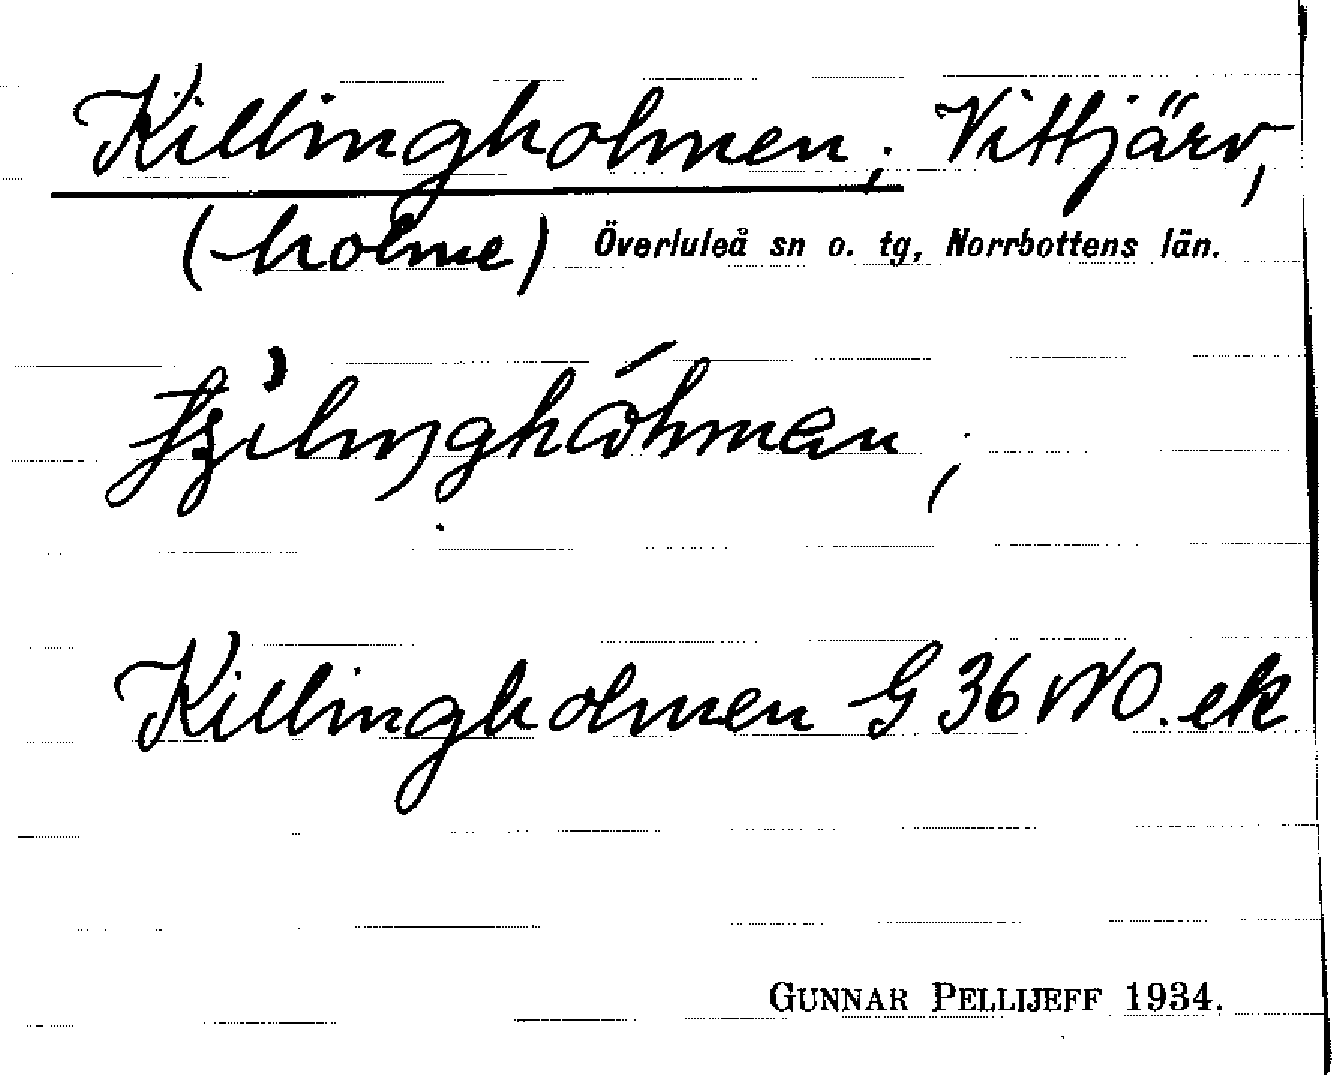 Killingholmen; Vittjärv,
(-holme) Överluleå sn o. tg, Norrbottens län.
Killingholmen G 36 NO. ek
GUNNAR PELLIJEFF 1934.